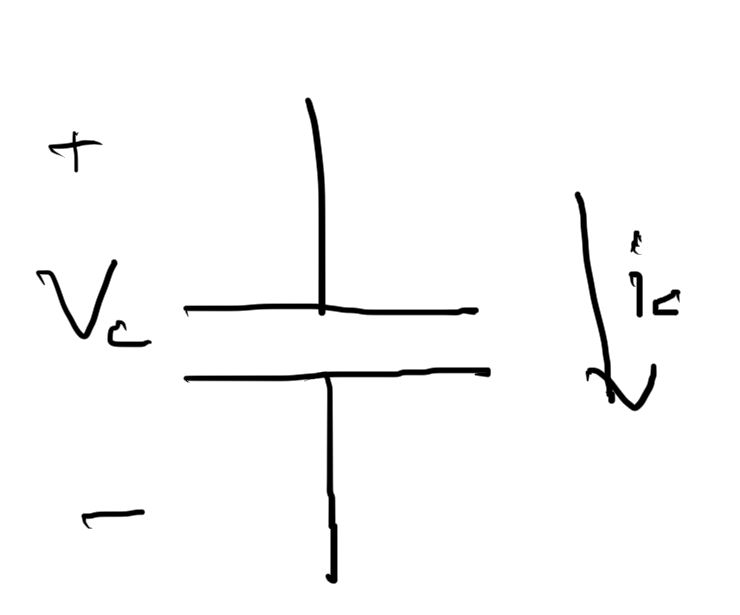 +
Vc
ic
−